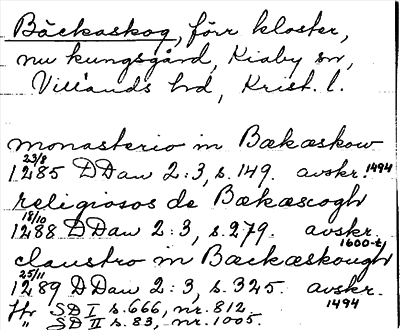 Bäckaskog, förr kloster,
nu kungsgård, Kiaby sn,
Villands hd, Krist. l.
monasterio in Bækæskow
23/8
1285 DDan 2:3, s. 149. avskr. 1494
religiosos de Bækæscogh
18/10
1288 DDan 2:3, s. 279. avskr.
1600-t,
claustro in Bæckæskough
25/11
1289 DDan 2:3, s. 325. avskr.
1494
Jfr SD I s. 666, nr. 812.
" SD II s. 83, nr. 1005.